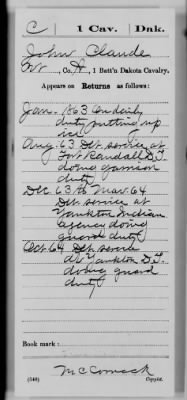 C 1 Cav. Dak.
John Claude
Pvt, Co. A, 1 Batt'n Dakota Cavalry.
Appears on Returns as follows:
Jan. 1863 On daily
duty putting up
ice
Aug. 63 Det. service at
Fort Randall D.T.
doing garrison
duty
Dec 63 to Mar 64
Det service at
Yankton Indian
agency doing
guard duty
Oct 64 Det service
at Yankton D.T.
doing guard
duty
Book mark:
McCormack
(546) Copyist.